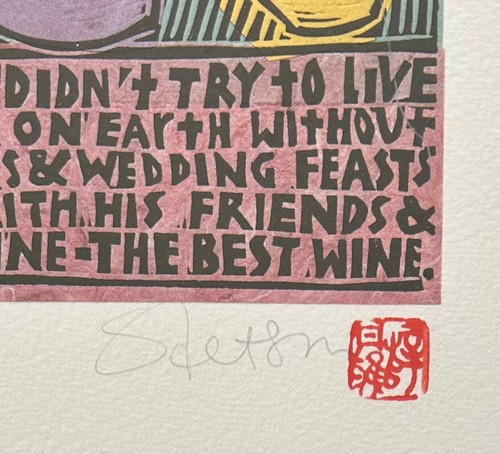 DIDN't TRY to LIVE
ON EARTH WITHOUT
S & WEDDING FEASTS
ITH HIS FRIENDS &
NE - THE BEST WINE.